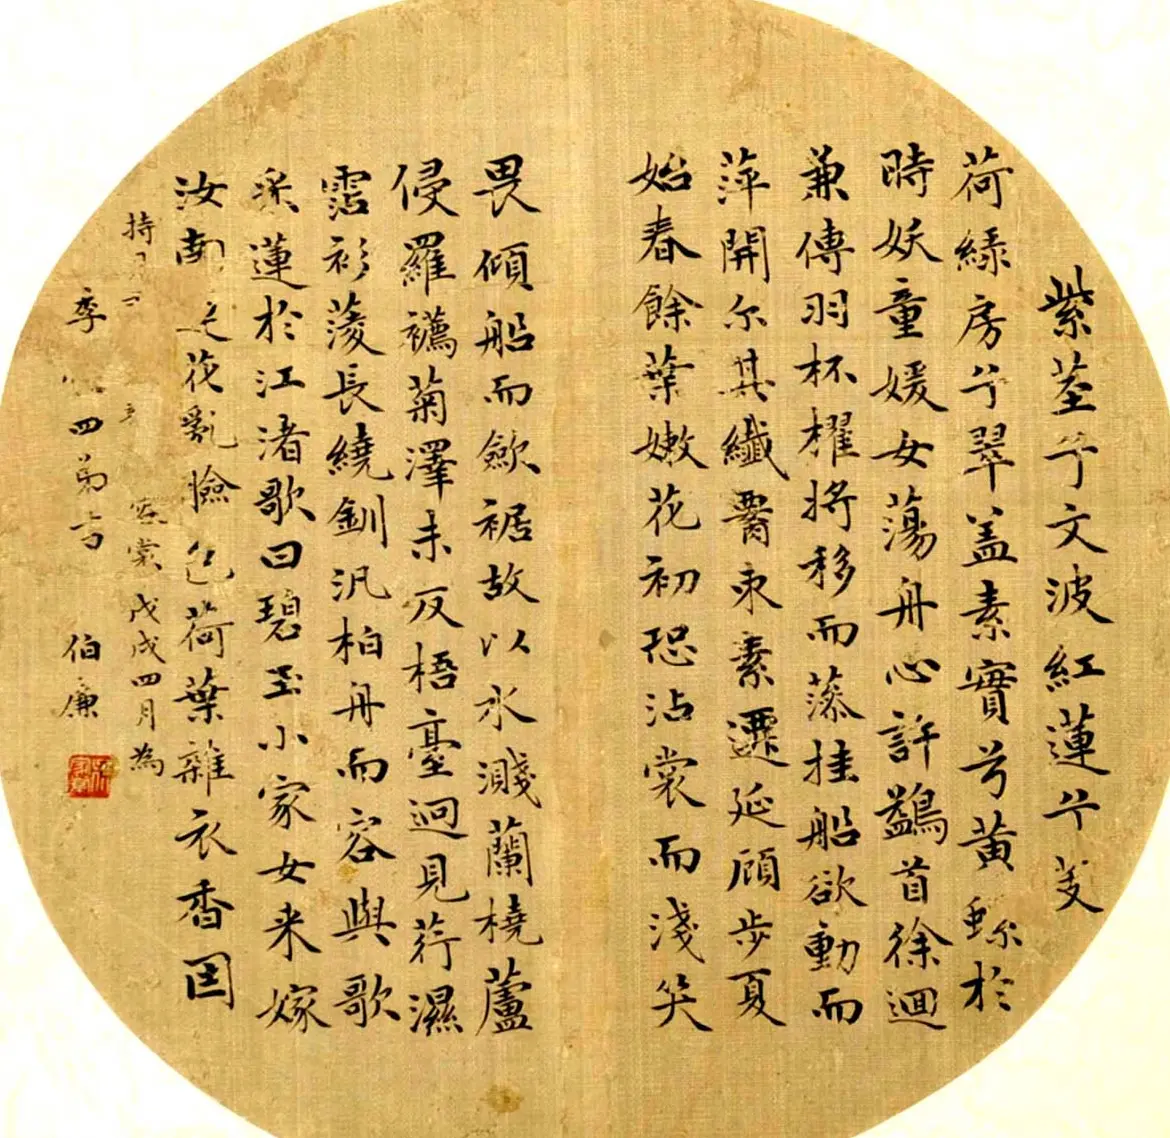 紫莖兮文波紅蓮兮芰
荷綠房兮翠盖素實兮黃螺於
時妖童媛女蕩舟心許鷁首徐迴
兼傳羽杯櫂將移而藻挂船欲動而
萍開尔其纖𦡶束素遷延顧步夏
始春餘葉嫩花初恐沾裳而淺笑
畏傾船而歛裾故以水濺蘭橈蘆
侵羅襪菊澤未反梧臺迥見荇濕
霑衫菱長繞釧汎柏舟而容與歌
采蓮於江渚歌曰碧玉小家女来嫁
汝南花亂臉色荷葉雜衣香因
持 戊戌四月為
季 四弟 伯廉